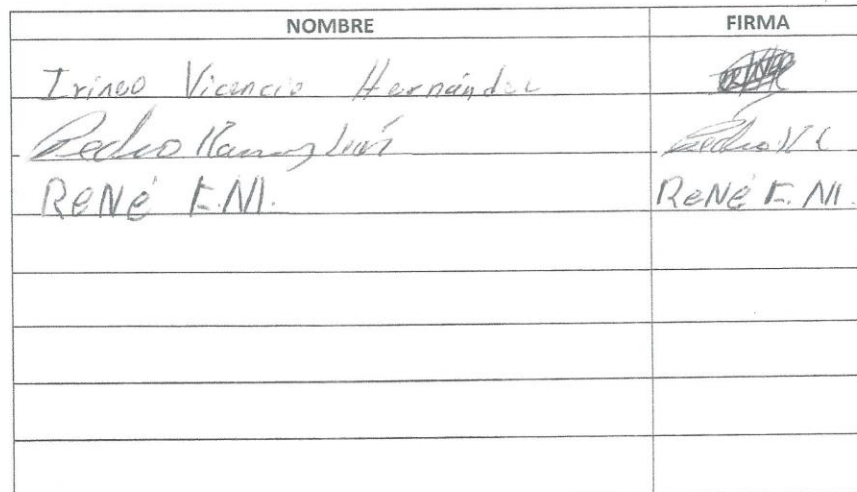 NOMBRE FIRMA
Irineo Vicencio Hernández
Pedro Ramos León Pedro R L
René F.M. René F.M.